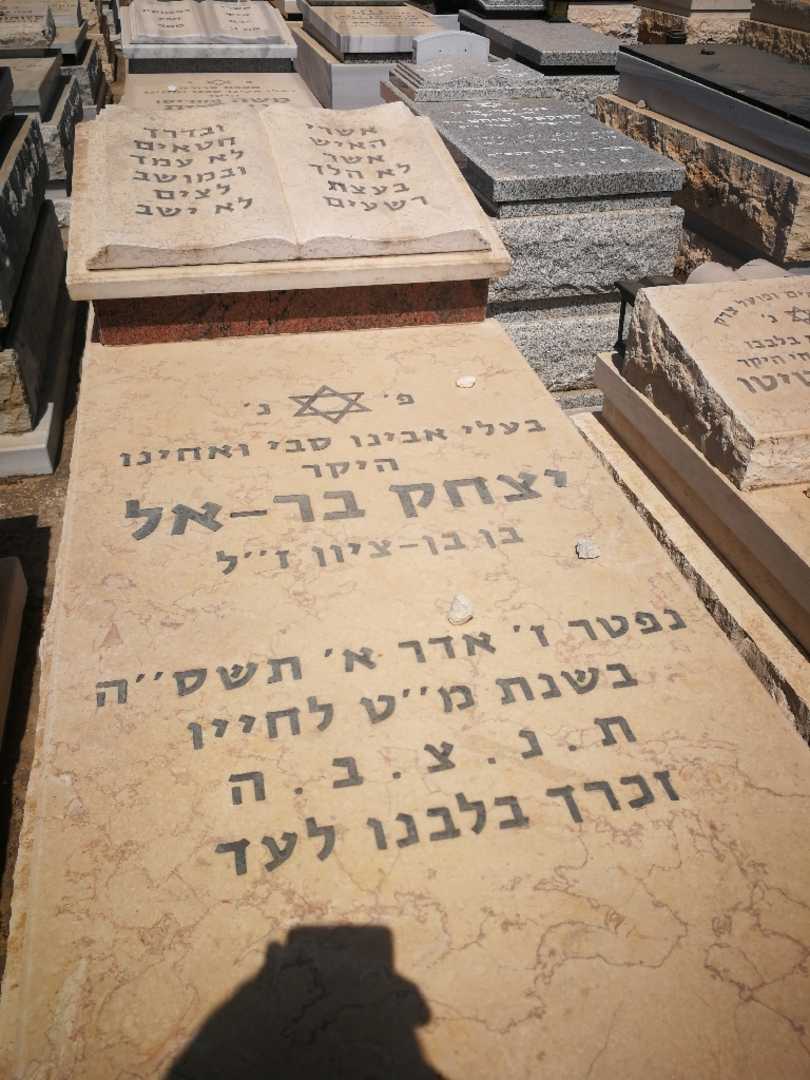 אשרי
האיש
אשר
לא הלך
בעצת
רשעים
ובדרך
חטאים
לא עמד
ובמושב
לצים
לא ישב
פ' נ'
בעלי אבינו סבי ואחינו
היקר
יצחק בר-אל
בן בן-ציון ז''ל
נפטר ז' אדר א' תשס''ה
בשנת מ''ט לחייו
ת . נ . צ . ב . ה
זכרך בלבנו לעד
ופועל צדק
נ'
בלבבו
היקר